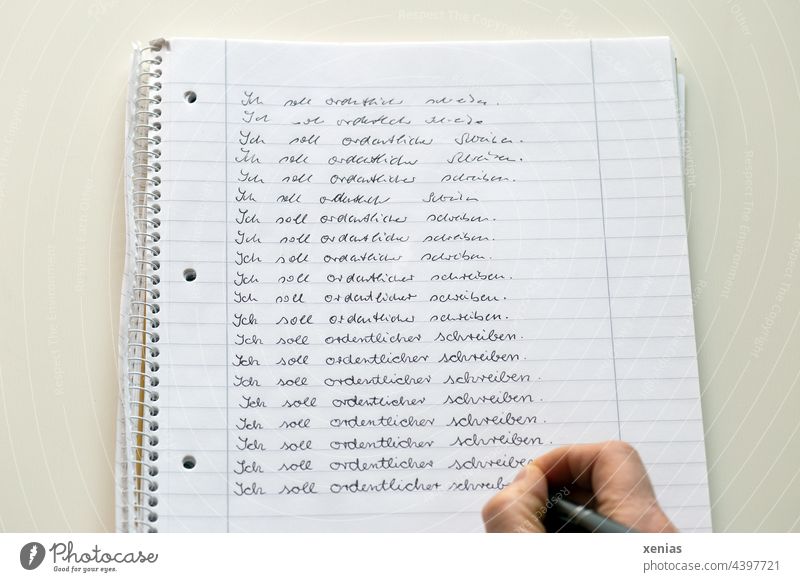 Ich soll ordentlicher schreiben.
Ich soll ordentlich
Ich soll ordentlicher schreiben.
Ich soll ordentlicher schreiben.
Ich soll ordentlicher schreiben.
Ich soll ordentlich
Ich soll ordentlicher schreiben.
Ich soll ordentlicher schreiben.
Ich soll ordentlicher schreiben.
Ich soll ordentlicher schreiben.
Ich soll ordentlicher schreiben.
Ich soll ordentlicher schreiben.
Ich soll ordentlicher schreiben.
Ich soll ordentlicher schreiben.
Ich soll ordentlicher schreiben.
Ich soll ordentlicher schreiben.
Ich soll ordentlicher schreiben.
Ich soll ordentlicher schreiben.
Ich soll ordentlicher schreiben
Ich soll ordentlicher schreib
Photocase
Good for your eyes.
xenias
ID 4397721